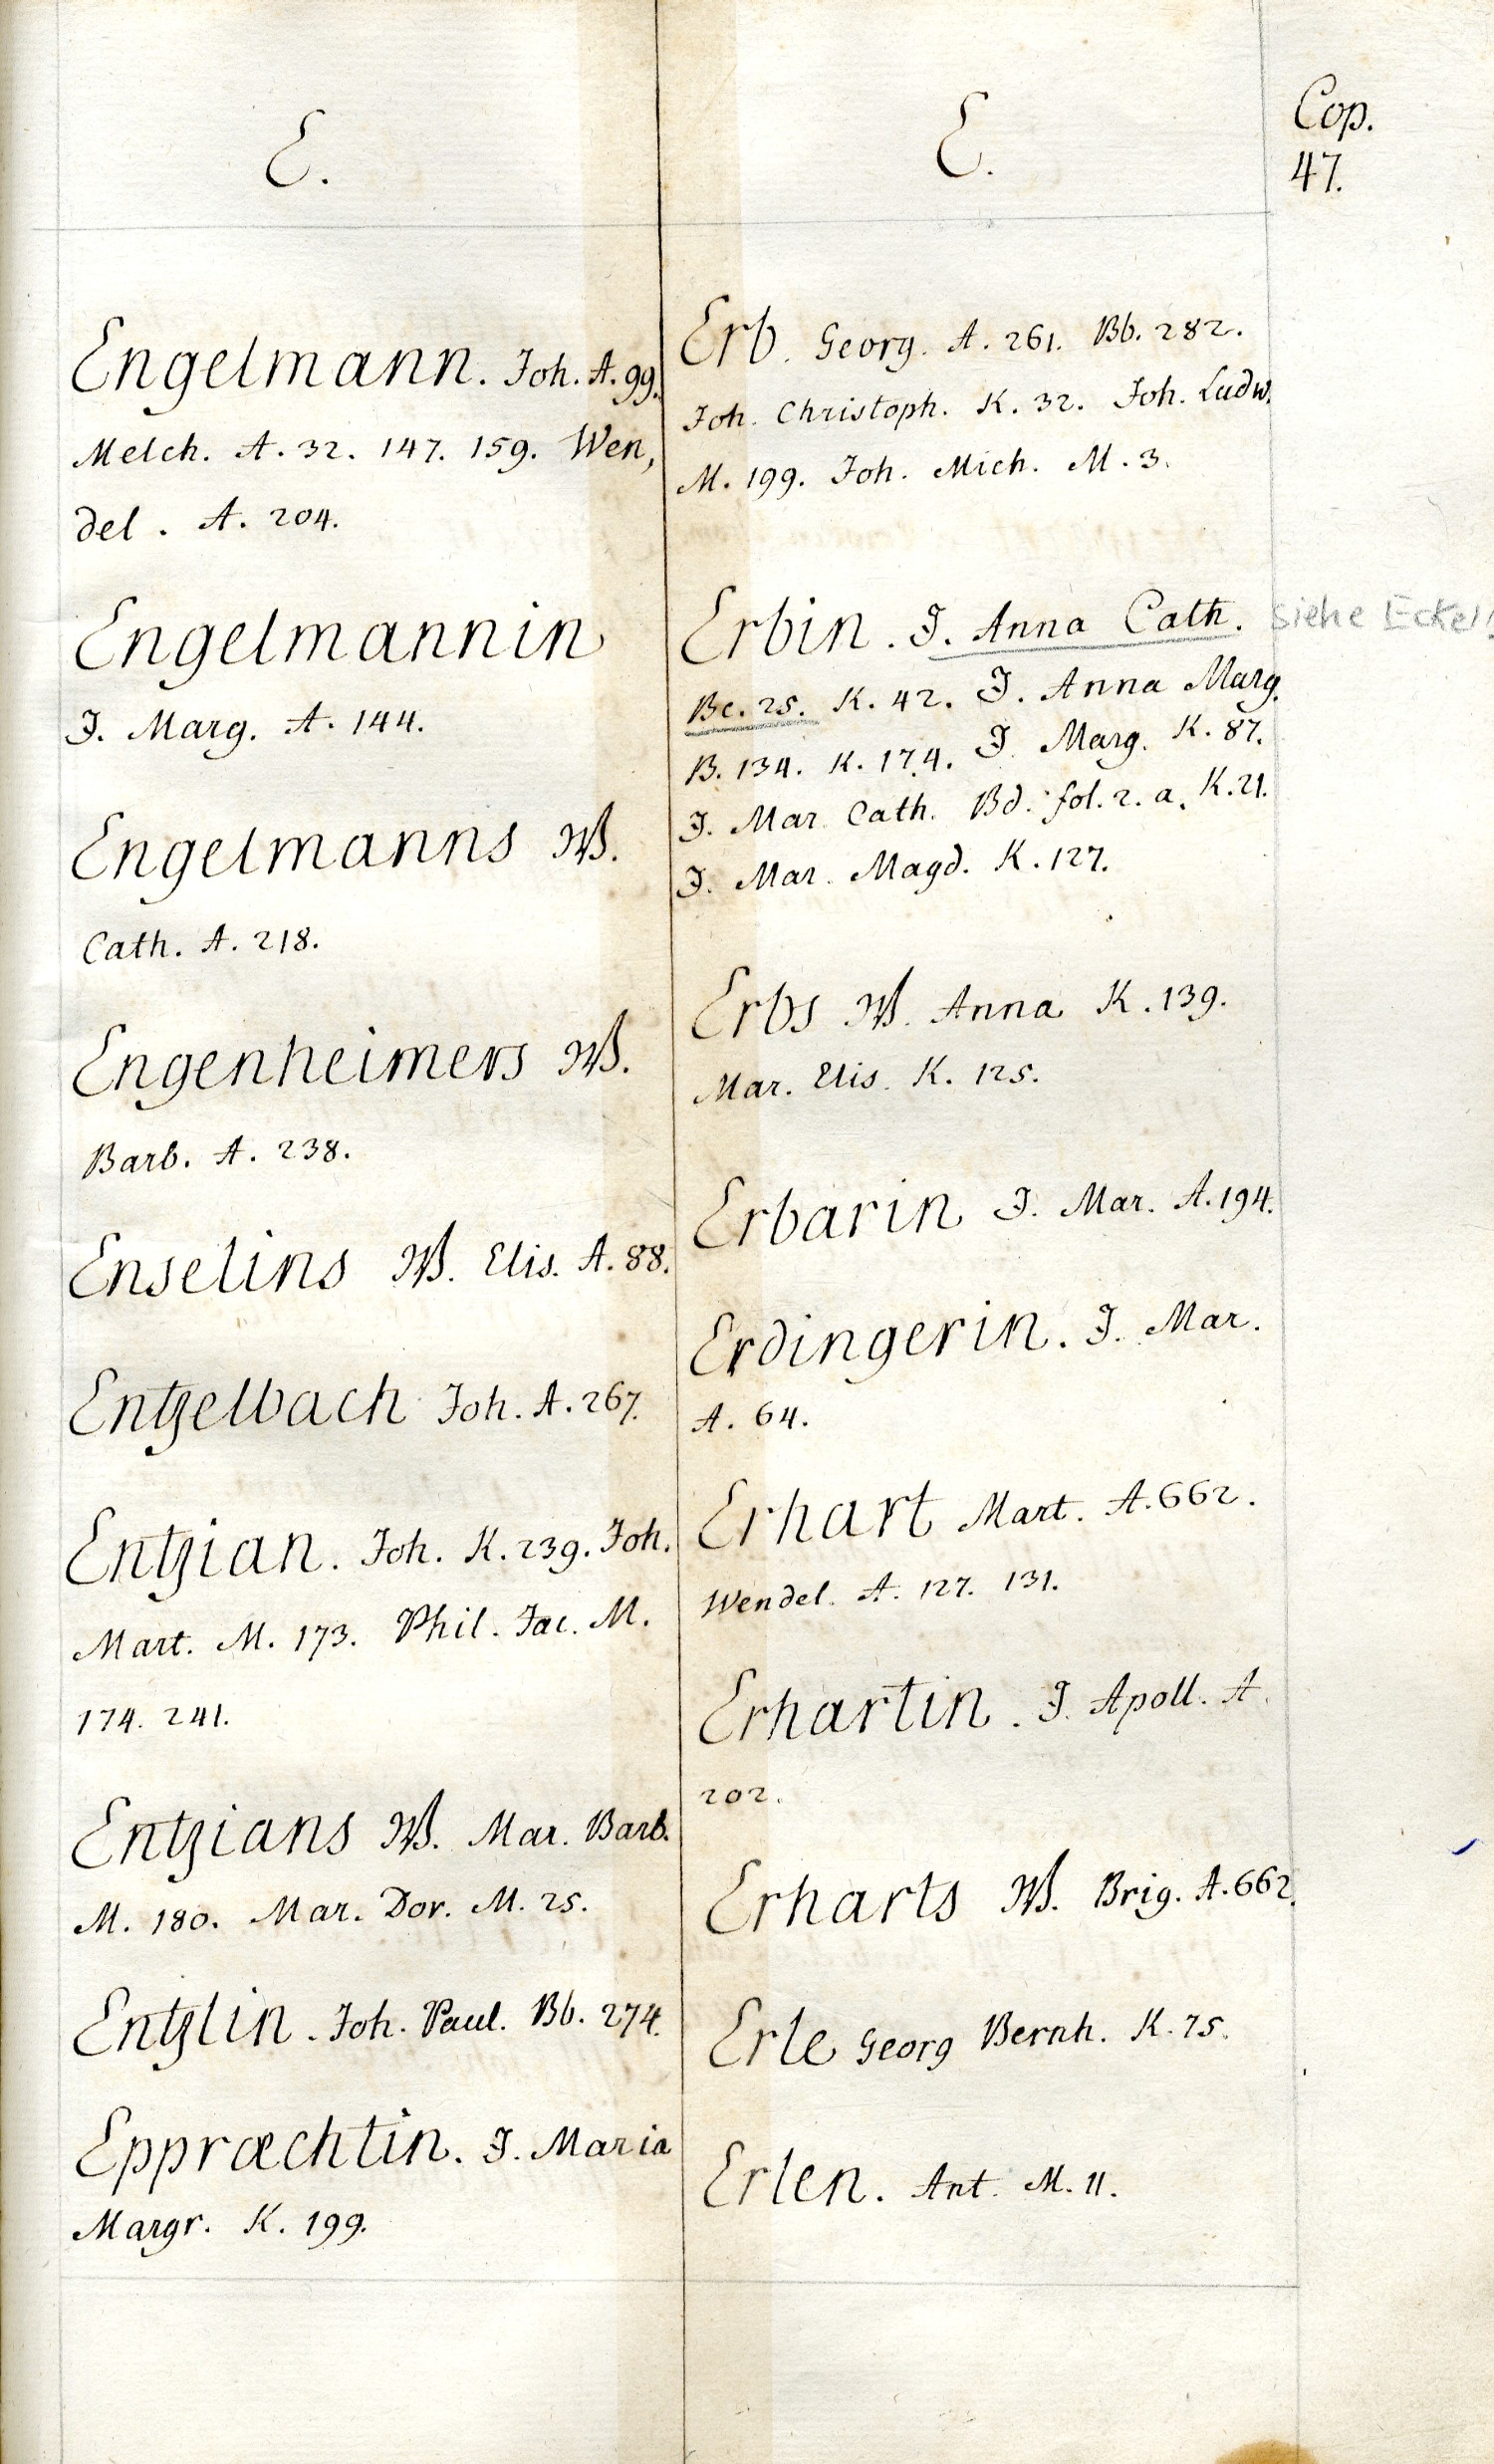 E.
Engelmann. Joh. A. 99.
Melch. A. 32. 147. 159. Wen,
del. A. 204.
Engelmannin
J. Marg. A. 144.
Engelmanns W.
Cath. A. 218.
Engenheimers W.
Barb. A. 238.
Enselins W. Elis. A. 88.
Entzelbach Joh. A. 267.
Entzian. Joh. K. 239. Joh.
Mart. M. 173. Phil. Jac. M.
174. 241.
Entzians W. Mar. Barb.
M. 180. Mar. Dor. M. 25.
Entzlin. Joh. Paul. Bb. 274.
Eppræchtin. J. Maria
Margr. K. 199.
E.
Erb. Georg. A. 261. Bb. 282.
Joh. Christoph. K. 32. Joh. Ludw.
M. 199. Joh. Mich. M. 3.
Erbin. J. Anna Cath. siehe Eckel!
Bc. 25. K. 42. J. Anna Marg.
B. 134. K. 174. J. Marg. K. 87.
J. Mar. Cath. Bd. fol. 2. a. K. 21.
J. Mar. Magd. K. 127.
Erbs W. Anna K. 139.
Mar. Elis. K. 125.
Erbarin J. Mar. A. 194.
Erdingerin. J. Mar.
A. 64.
Erhart Mart. A. 662.
Wendel. A. 127. 131.
Erhartin. J. Apoll. A.
202.
Erharts W. Brig. A. 662.
Erle Georg Bernh. K. 75.
Erlen. Ant. M. 11.
Cop.
47.